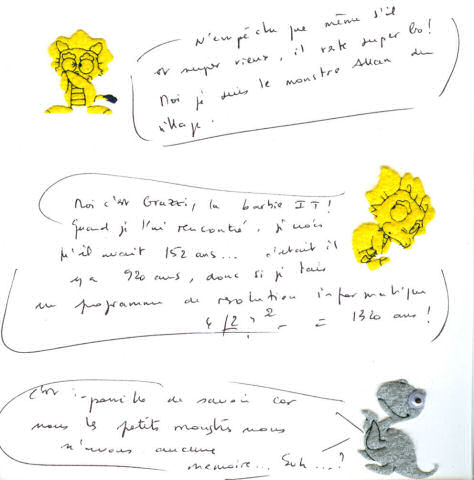 N'empêche que même s'il
est super vieux, il reste super bo!
Moi je suis le monstre du
village.
Moi c'est Grazzi, la barbie IT!
Quand je l'ai rencontré, je crois
qu'il avait 152 ans... c'était il
y a 920 ans, donc si je fais
un programme de résolution informatique
= 1320 ans!
C'est impossible de savoir car
nous les petits monstres nous
n'avons aucune
mémoire...